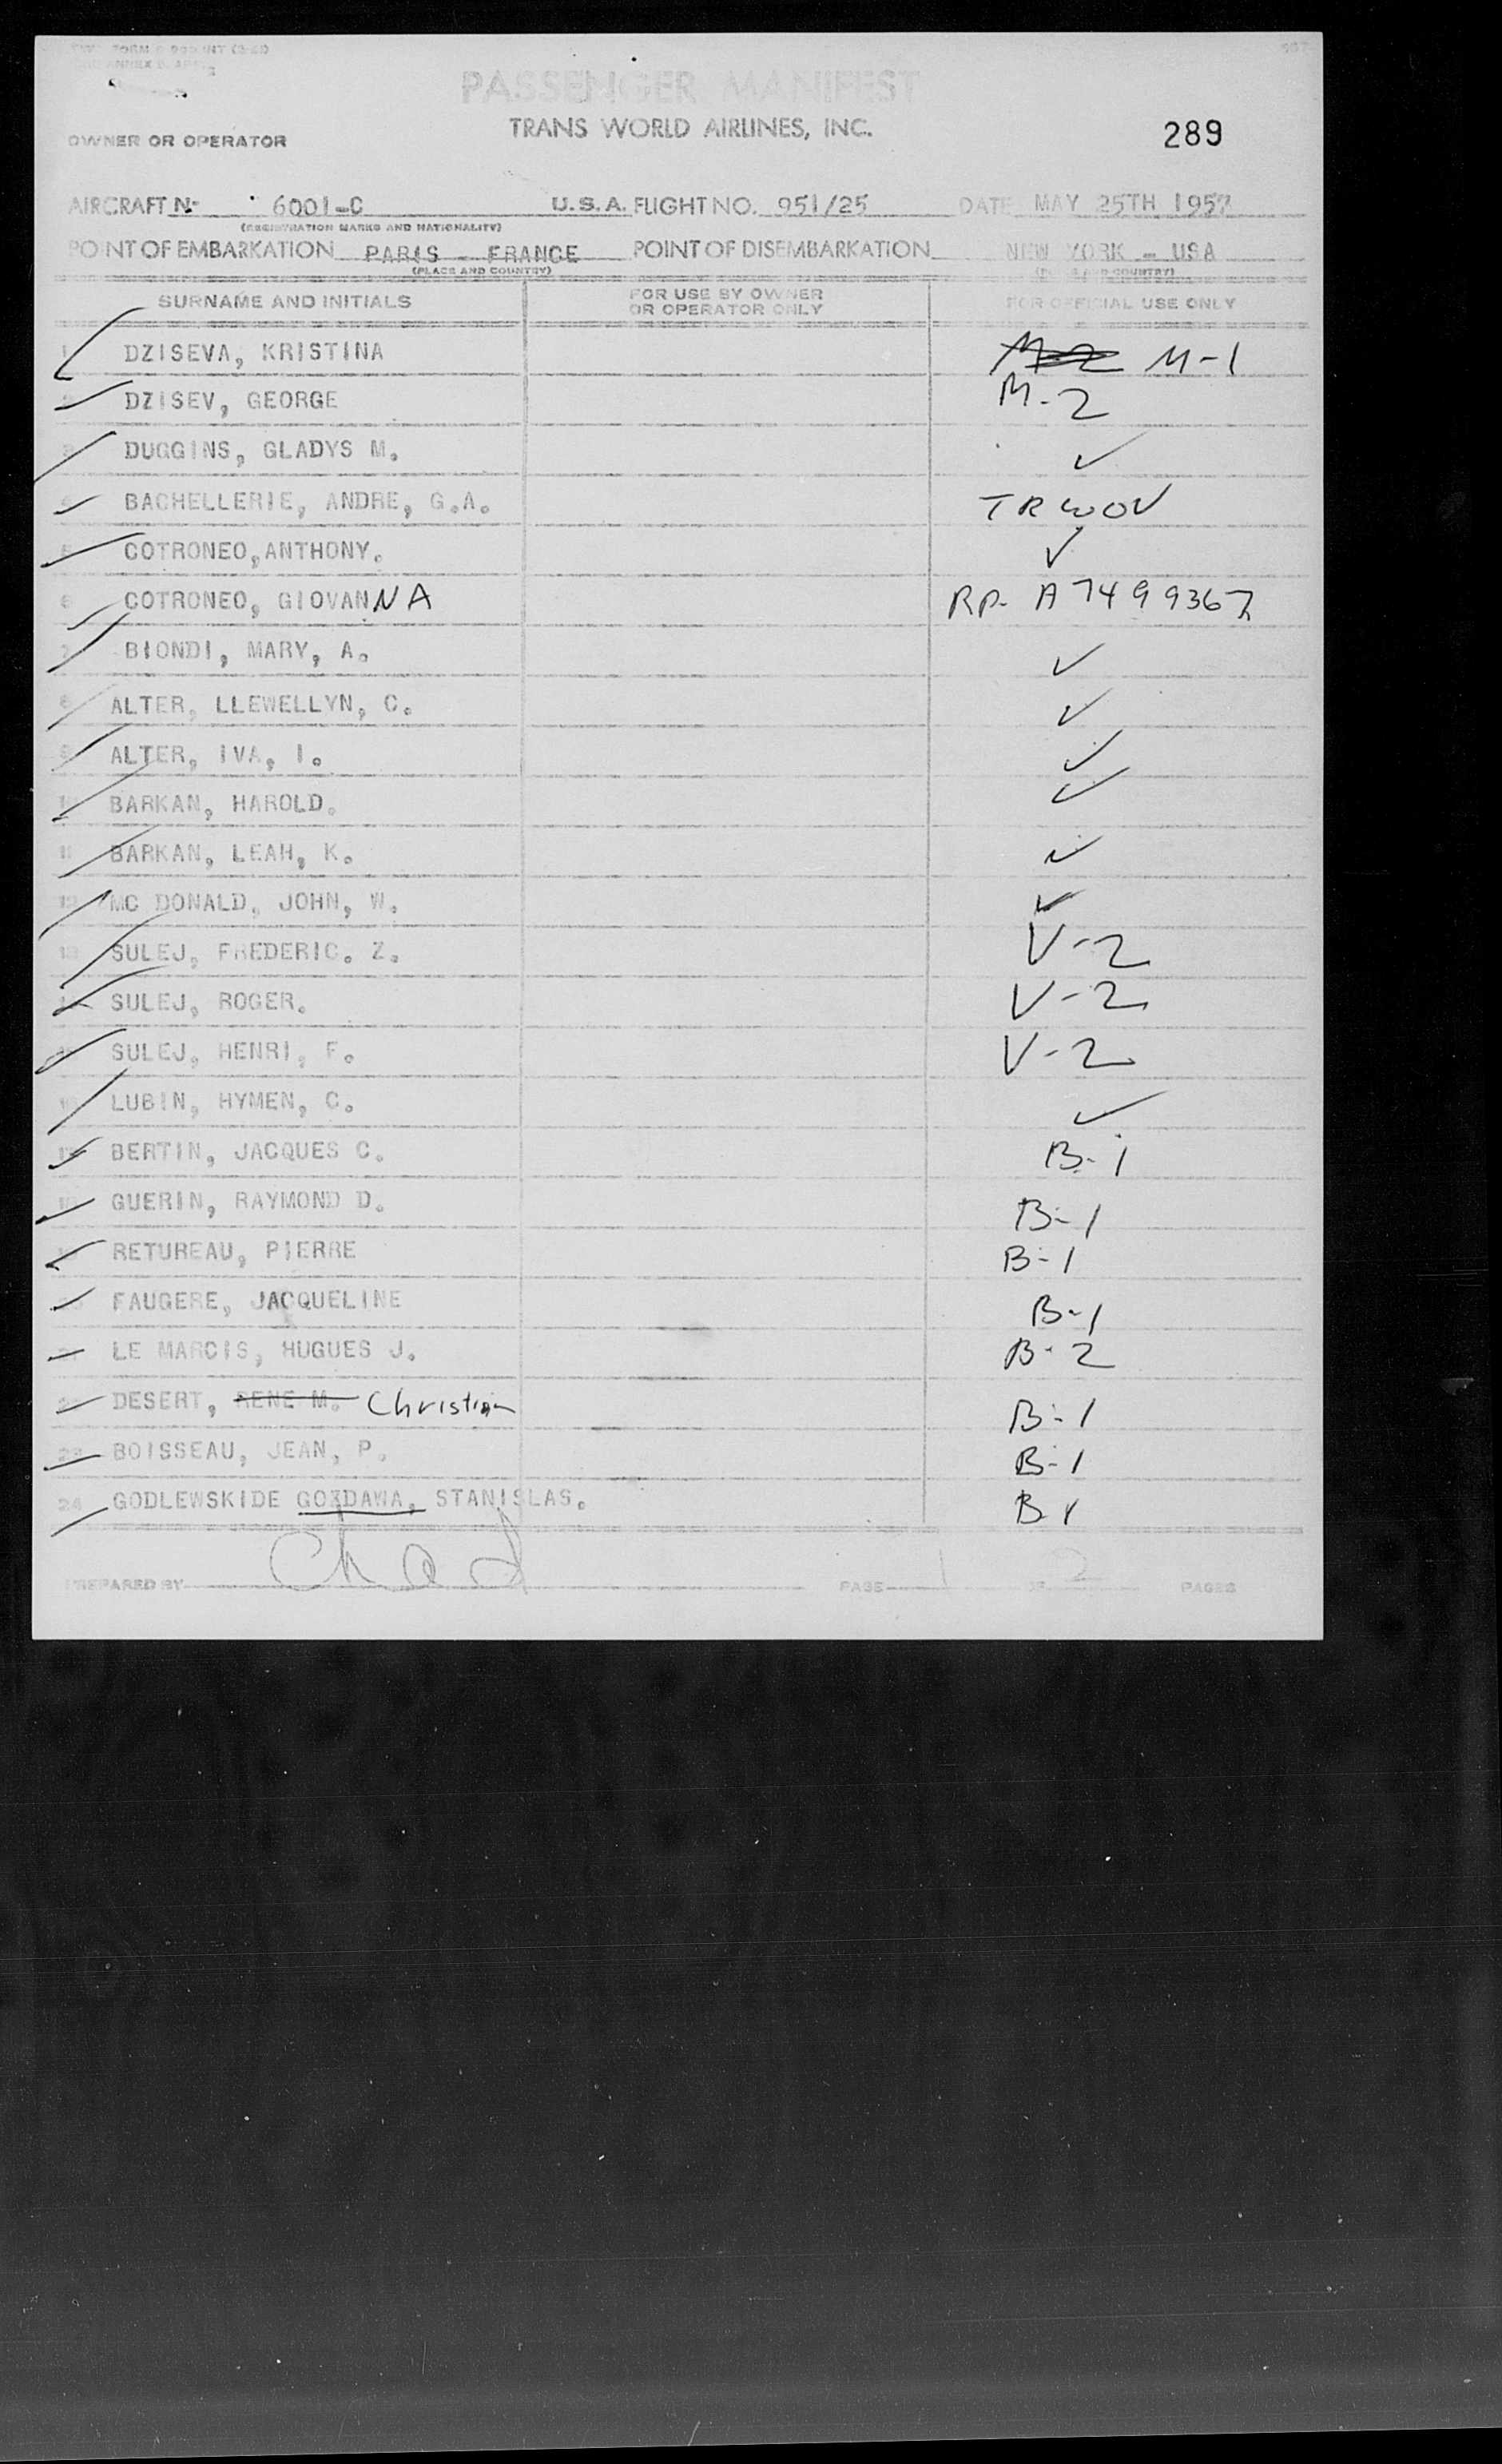 PASSENGER MANIFEST
TRANS WORLD AIRLINES, INC.
289
OWNER OR OPERATOR
AIRCRAFT Nº 6001-C U.S.A. FLIGHT NO. 951/25 DATE MAY 25TH 1957
(REGISTRATION MARKS AND NATIONALITY)
POINT OF EMBARKATION PARIS - FRANCE POINT OF DISEMBARKATION NEW YORK - USA
(PLACE AND COUNTRY) (PLACE AND COUNTRY)
SURNAME AND INITIALS FOR USE BY OWNER OR OPERATOR ONLY FOR OFFICIAL USE ONLY
1 DZISEVA, KRISTINA M-2 M-1
2 DZISEV, GEORGE M-2
3 DUGGINS, GLADYS M. ✓
4 BACHELLERIE, ANDRE, G.A. TRWOV
5 COTRONEO,ANTHONY. ✓
6 COTRONEO, GIOVANNA RP- A7499367
7 BIONDI, MARY, A. ✓
8 ALTER, LLEWELLYN, C. ✓
9 ALTER, IVA, I. ✓
10 BARKAN, HAROLD. ✓
11 BARKAN, LEAH, K. ✓
12 MC DONALD, JOHN, W. ✓
13 SULEJ, FREDERIC. Z. V-2
14 SULEJ, ROGER. V-2
15 SULEJ, HENRI, F. V-2
16 LUBIN, HYMEN, C. ✓
17 BERTIN, JACQUES C. B-1
18 GUERIN, RAYMOND D. B-1
19 RETUREAU, PIERRE B-1
20 FAUGERE, JACQUELINE B-1
21 LE MARCIS, HUGUES J. B-2
22 DESERT, RENE M. Christian B-1
23 BOISSEAU, JEAN, P. B-1
24 GODLEWSKIDE GOZDAWA, STANISLAS. B-1
PREPARED BY Chad PAGE 1 OF 2 PAGES